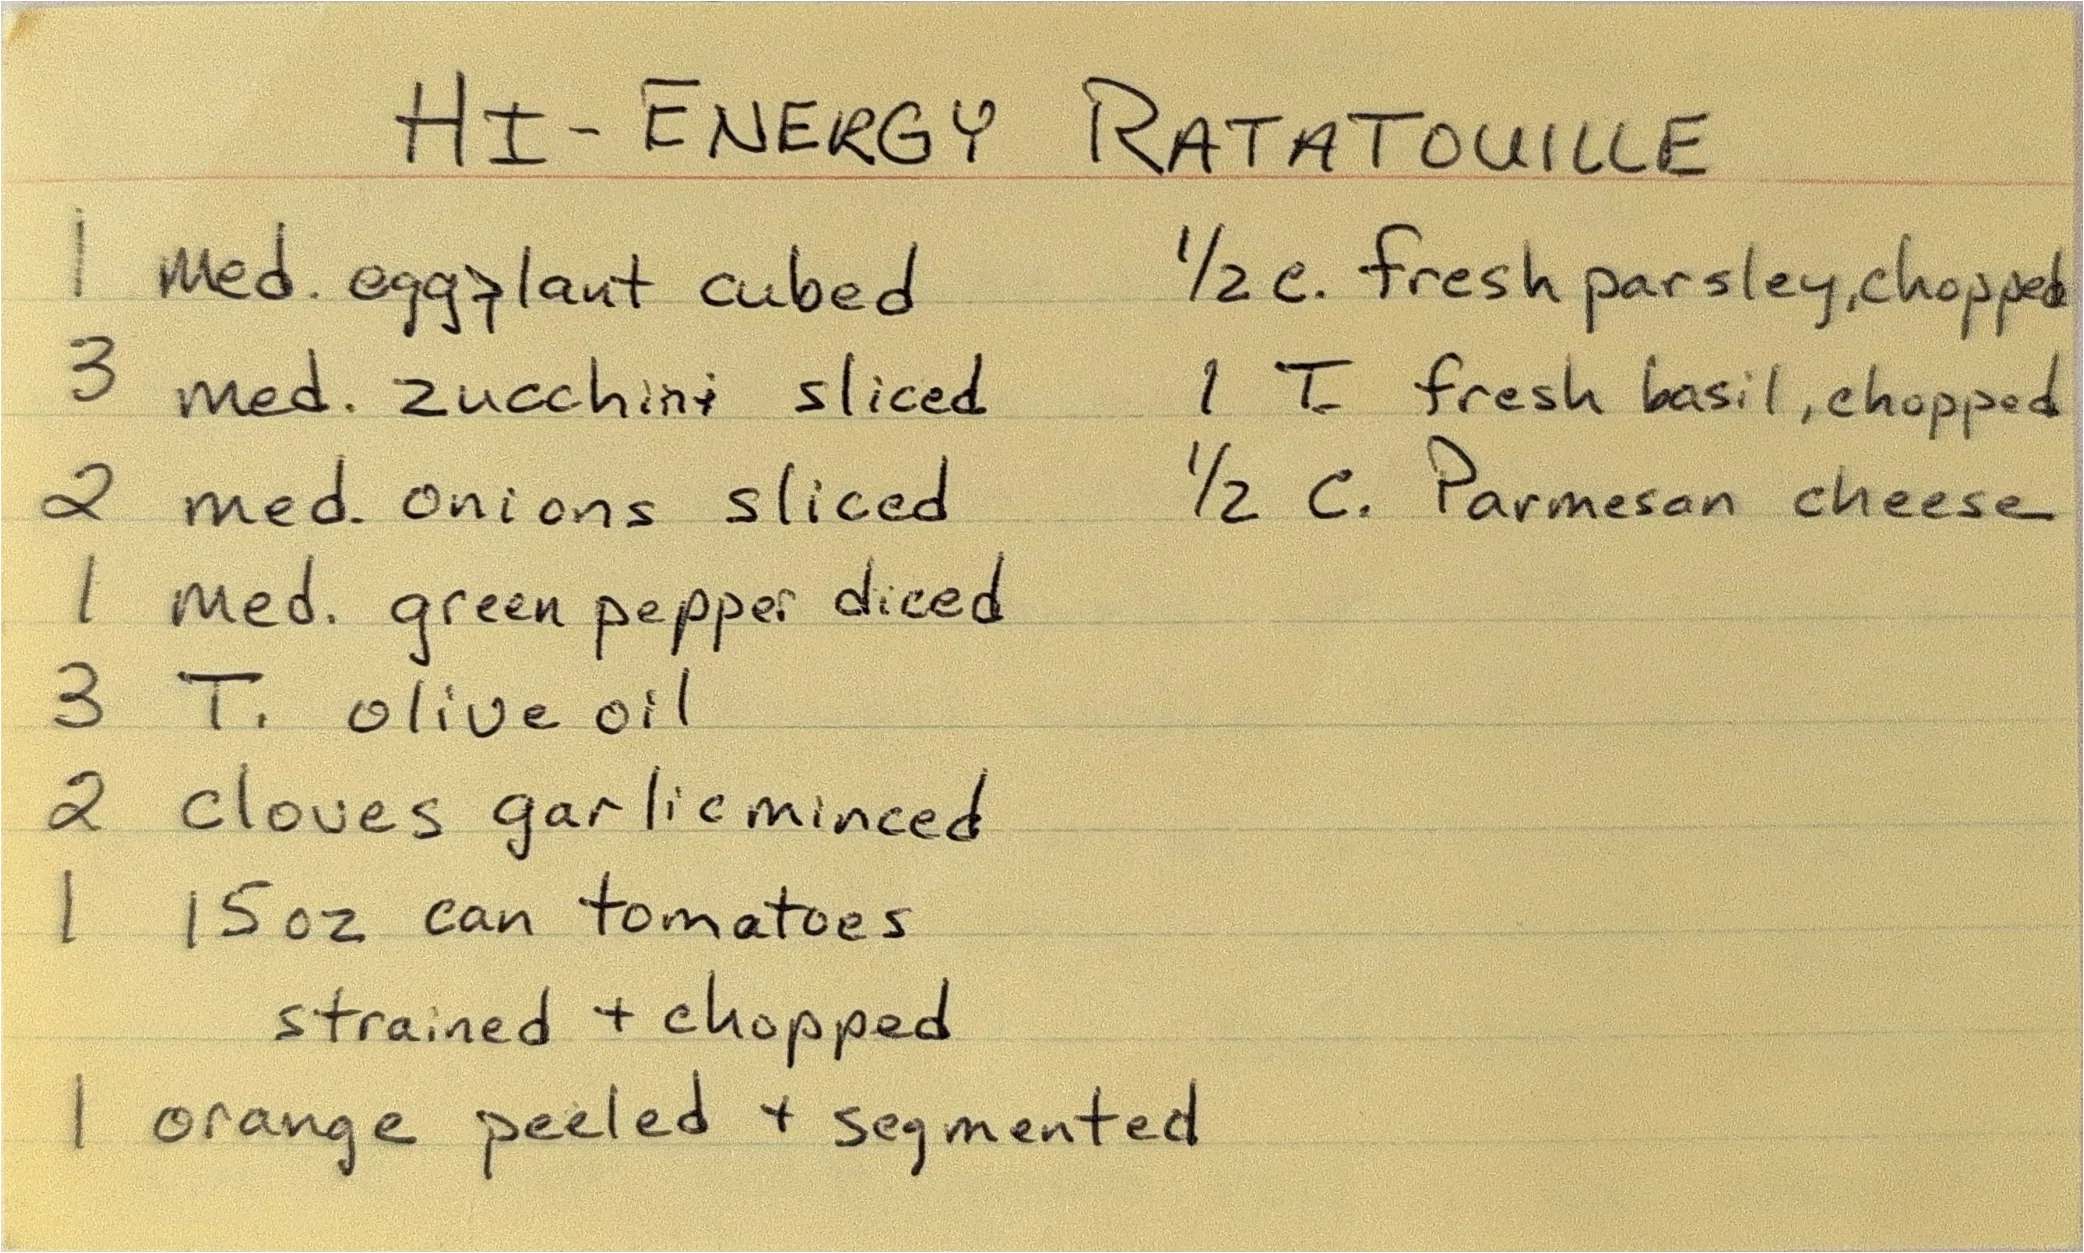 HI-ENERGY RATATOUILLE
1 med. eggplant cubed
3 med. zucchini sliced
2 med. onions sliced
1 med. green pepper diced
3 T. olive oil
2 cloves garlic minced
1 15 oz can tomatoes
strained + chopped
1 orange peeled + segmented
1/2 c. fresh parsley, chopped
1 T. fresh basil, chopped
1/2 C. Parmesan cheese